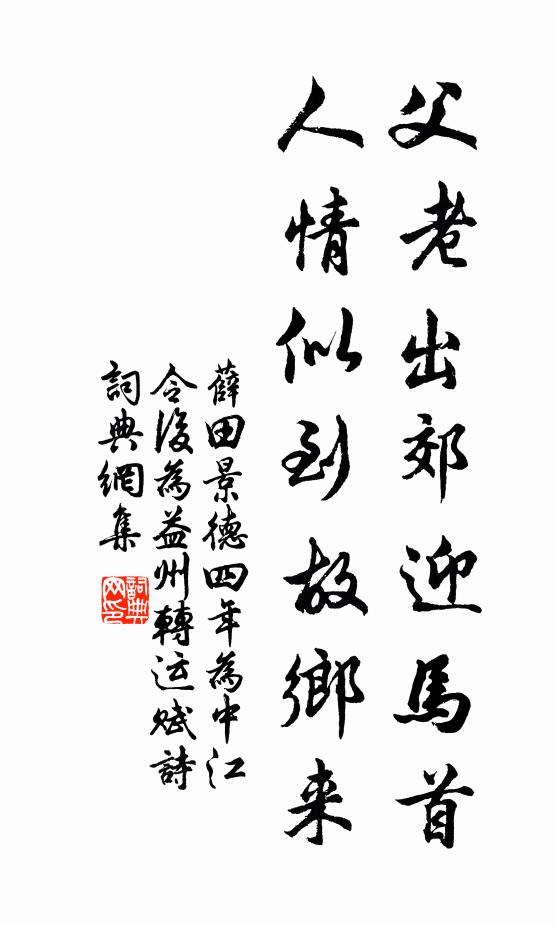 父老出郊迎馬首
人情似到故鄉来
薛田景德四年為中江
令後為益州轉运賦詩
詞典網集
詞典网印